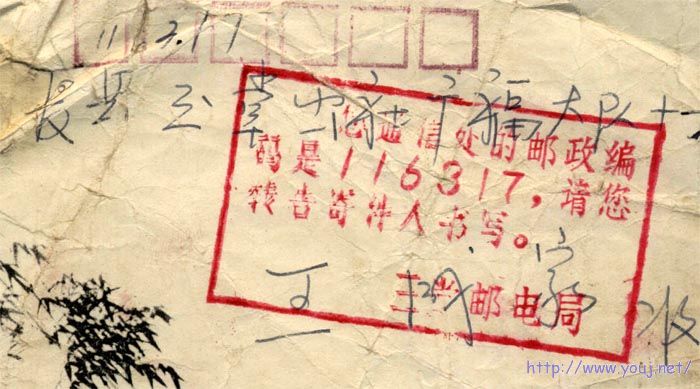 县 三堂 福大队十
您通信处的邮政编
码是116317,请您
转告寄件人书写。
三堂邮电局
王 收
http://www.youj.net/